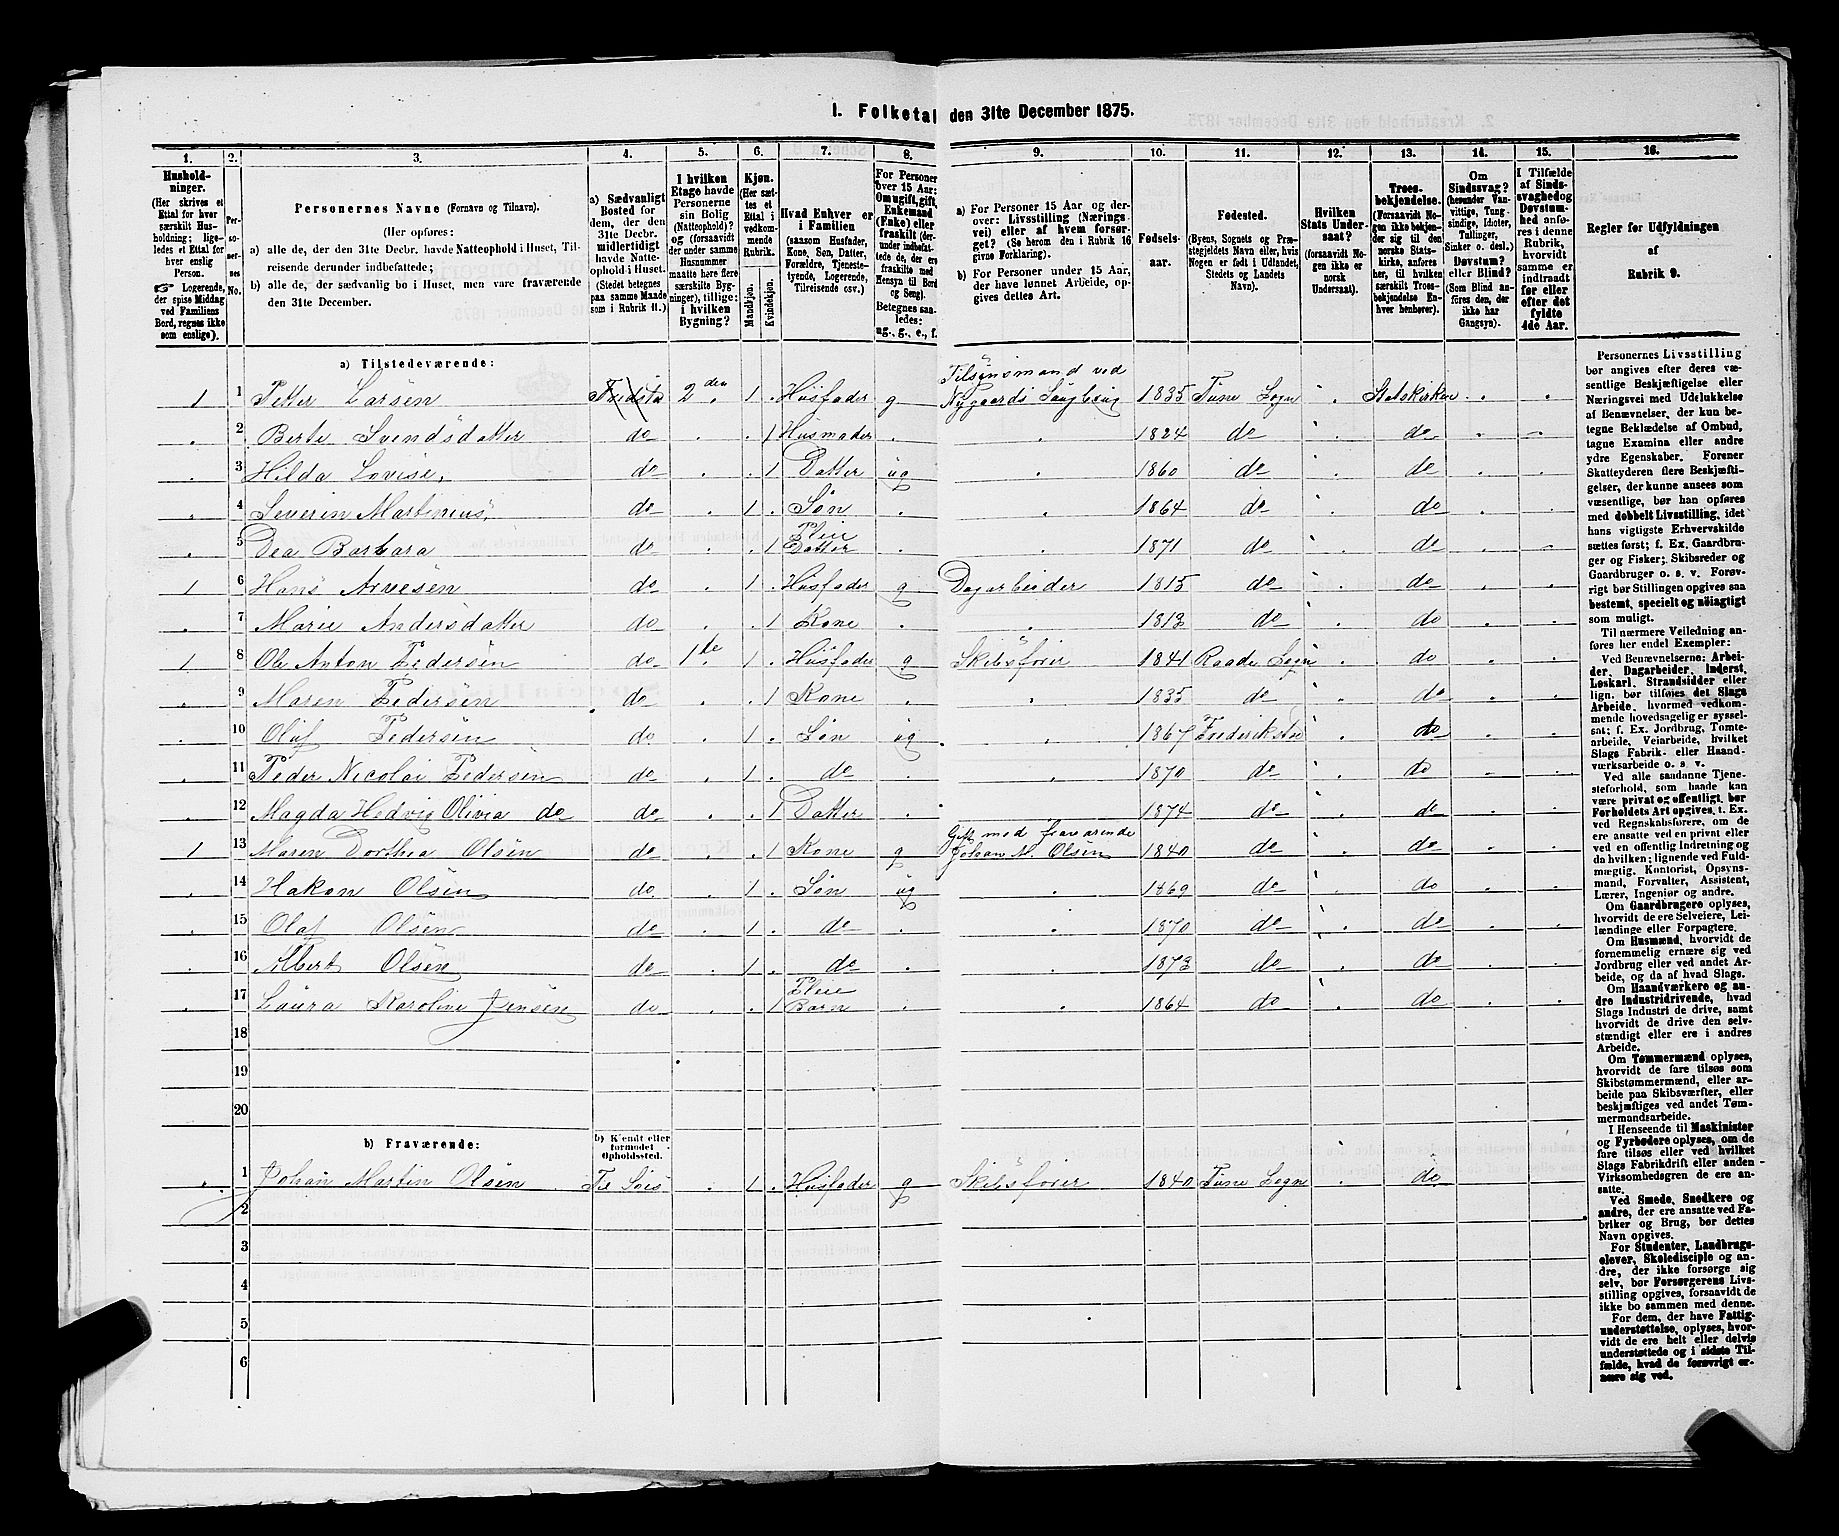 I. Folketal den 31te December 1875.
1. 2. 3. 4. 5. 6. 7. 8. 9. 10. 11. 12. 13. 14. 15. 16.
Husholdninger.
(Her skrives et
Ettal for hver
særskilt Husholdning; ligeledes et Ettal for
hver enslig
Person.
☞ Logerende,
der spise Middag
ved Familiens
Bord, regnes ikke
som enslige).
Personernes No.
Personernes Navne (Fornavn og Tilnavn).
(Her opføres:
a) alle de, der den 31te Decbr. havde Natteophold i Huset, Tilreisende derunder indbefattede;
b) alle de, der sædvanlig bo i Huset, men vare fraværende
den 31te December.
a) Sædvanligt
Bosted for
dem, der den
31te Decbr.
midlertidigt
havde Natteophold i Huset.
(Stedet betegnes
paa samme Maade
som i Rubrik 11.)
I hvilken
Etage havde
Personerne
sin Bolig
(Natteophold)?
og (forsaavidt
der under samme
Husnummer
maatte høre flere
særskilte Bygninger), tillige:
i hvilken
Bygning?
Kjøn.
(Her sættes et
Ettal i
vedkommende
Rubrik.
Mandkjøn.
Kvindekjøn.
Hvad Enhver er
i Familien
(saasom Husfader,
Kone, Søn, Datter,
Forældre, Tjenestetyende, Logerende,
Tilreisende osv.)
For Personer
over 15 Aar:
Om ugift, gift,
Enkemand
(Enke) eller
fraskilt (derunder indbefattede de, der ere
fraskilte med
Hensyn til Bord
og Seng).
Betegnes saaledes:
ug., g., e., f.
a) For Personer 15 Aar og derover: Livsstilling (Næringsvei) eller af hvem forsørget? (Se herom den i Rubrik 16
givne Forklaring).
b) For Personer under 15 Aar,
der have lønnet Arbeide, opgives dettes Art.
Fødselsaar.
Fødested.
(Byens, Sognets og Præstegjeldets Navn eller, hvis
Nogen er født i Udlandet,
Stedets og Landets
Navn).
Hvilken
Stats Undersaat?
(forsaavidt Nogen ikke er
norsk
Undersaat).
Troesbekjendelse.
(Forsaavidt Nogen ikke bekjender sig til den
norske Statskirke, anføres
her, til hvilken
særskilt Troesbekjendelse Enhver henhører).
Om
Sindssvag?
(herunder Vanvittige, Tungsindige, Idioter,
Tullinger,
Sinker o. desl.)
Døvstum?
eller Blind?
(Som Blind anføres den, der
ikke har
Gangsyn).
I Tilfælde
af Sindssvaghed og
Døvstumhed anføres i denne
Rubrik,
hvorvidt
samme er
indtraadt
før eller
efter det
fyldte
4de Aar.
Regler for Udfyldningen
af
Rubrik 9.
a) Tilstedeværende:
1 1 Petter Larsen 2den 1 Husfader g Tilsynsmand ved Nygaards Sangbrug 1835 Tune Sogn Statskirken
2 Berte Svendsdatter do 1 Husmoder 1824 do do
3 Hilda Lovise, do 1 Datter ug 1860 do do
4 Severin Martinius, do 1 Søn 1864 do do
5 Dea Barbara do 1 Pleie Datter 1871 do do
1 6 Hans Arvesen do 1 Husfader g Dagarbeider 1815 do do
7 Marie Andersdatter do 1 Kone 1813 do do
1 8 Ole Anton Pedersen do 1te 1 Husfader g Skibsfører 1841 Raade Sogn do
9 Maren Pedersen do 1 Kone 1835 do do
10 Oluf Pedersen do 1 Søn ug 1867 Frederikstad do
11 Peder Nicolai Pedersen do 1 do 1870 do do
12 Magda Hedvig Olivia do do 1 Datter 1874 do do
1 13 Maren Dorthea Olsen do 1 Kone g Gift med fraværende Johan M. Olsen 1840 do do
14 Hakon Olsen do 1 Søn ug 1869 do do
15 Olaf Olsen do 1 do 1870 do do
16 Albert Olsen do 1 do 1873 do do
17 Laura Karoline Jensen do 1 Pleie Barn 1864 do do
18
19
20
b) Fraværende:
b) Kjendt eller
formodet
Opholdssted.
1 Johan Martin Olsen Til Søes 1 Husfader g Skibsfører 1840 Tune Sogn do
2
3
4
5
6
Personernes Livsstilling
bør angives efter deres væsentlige Beskjæftigelse eller
Næringsvei med Udelukkelse
af Benævnelser, der kun betegne Beklædelse af Ombud,
tagne Examina eller andre
ydre Egenskaber. Forener
Skatteyderen flere Beskjæftigelser, der kunne ansees som
væsentlige, bør han opføres
med dobbelt Livsstilling, idet
hans vigtigste Erhvervskilde
sættes først; f. Ex. Gaardbruger og Fisker; Skibsreder og
Gaardbruger o. s. v. Forøvrigt bør Stillingen opgives saa
bestemt, specielt og nöiagtigt
som muligt.
Til nærmere Veiledning anføres her endel Exempler:
Ved Benævnelserne: Arbeider, Dagarbeider, Inderst,
Løskarl, Strandsidder eller
lign. bør tilføies det Slags
Arbeide, hvormed vedkommende hovedsagelig er sysselsat; f. Ex. Jordbrug, Tomtearbeide, Veiarbeide, hvilket
Slags Fabrik- eller Haandværksarbeide o. s. v.
Ved alle saadanne Tjenesteforhold, som baade kan
være privat og offentligt, bør
Forholdets Art opgives, t. Ex.
ved Regnskabsførere, om de
ere ansatte ved en privat eller
ved en offentlig Indretning og
da hvilken; lignende ved Fuldmægtig, Kontorist, Opsynsmand, Forvalter, Assistent,
Lærer, Ingeniør og andre.
Om Gaardbrugere oplyses,
hvorvidt de ere Selveiere, Leilændinge eller Forpagtere.
Om Husmænd, hvorvidt de
fornemmelig ernære sig ved
Jordbrug eller ved andet Arbeide, og da af hvad Slags.
Om Haandværkere og andre Industridrivende, hvad
Slags Industri de drive, samt
hvorvidt de drive den selvstændigt eller ere i andres
Arbeide.
Om Tømmermænd oplyses,
hvorvidt de fare tilsøs som
Skibstømmermænd, eller arbeide paa Skibsværfter, eller
beskjæftiges ved andet Tømmermandsarbeide.
I Henseende til Maskinister
og Fyrbødere oplyses, om de
fare tilsøs eller ved hvilket
Slags Fabrikdrift eller anden
Virksomhedsgren de ere ansatte.
Ved Smede, Snedkere og
andre, der ere ansatte ved Fabriker og Brug, bør dettes
Navn opgives.
For Studenter, Landbrugselever, Skoledisciple og andre, der ikke forsørge sig
selv, bør Forsørgerens Livsstilling opgives, forsaavidt de
ikke bo sammen med denne.
For dem, der have Fattigunderstøttelse, oplyses, hvorvidt de ere helt eller delvis
understøttede og i sidste Tilfælde, hvad de forøvrigt ernære sig ved.